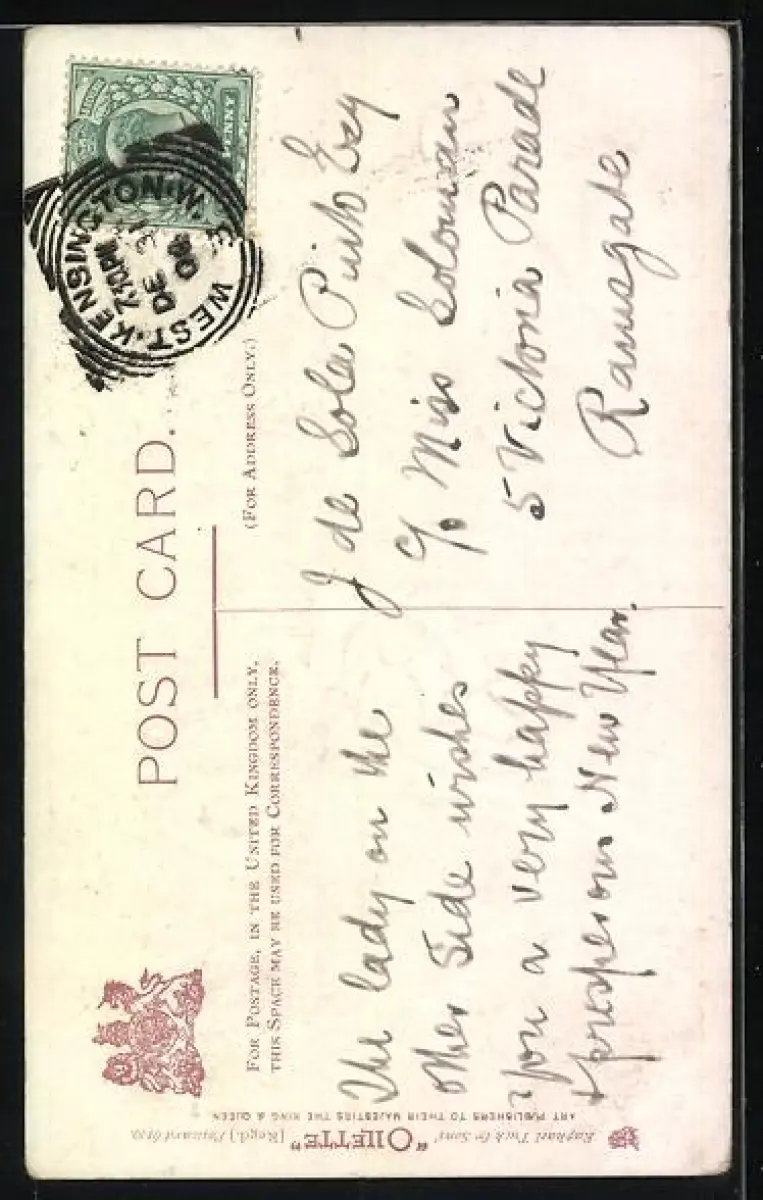 POST CARD.
FOR POSTAGE, IN THE UNITED KINGDOM ONLY,
THIS SPACE MAY BE USED FOR CORRESPONDENCE.
(FOR ADDRESS ONLY.)
PENNY
WEST.KENSINGTON.W.
7.30PM
DE 31
06
The lady on the
other side wishes
you a very happy
+ prosperous New Year.
J de Sola Pinto Esq
c/o Miss Soloman
5 Victoria Parade
Ramsgate
Raphael Tuck & Sons' "OILETTE" [Regd.] Postcard
ART PUBLISHERS TO THEIR MAJESTIES THE KING & QUEEN